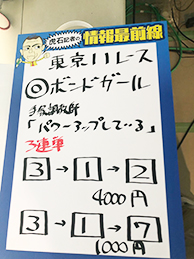 虎石記者の
情報最前線
東京11レース
◎ボンドガール
手塚調教師
「パワーアップしている」
3連単
3→1→2
4000円
3→1→7
1000円